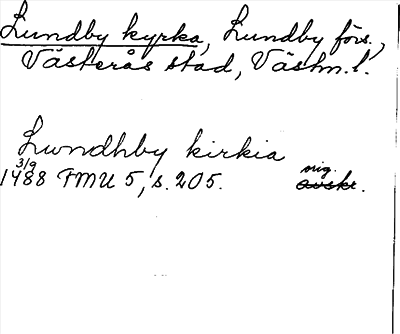 Lundby kyrka, Lundby förs.,
Västerås stad, Västm. l.
Lwndhby kirkia
3/9
1488 FMU 5, s. 205. orig. avskr.